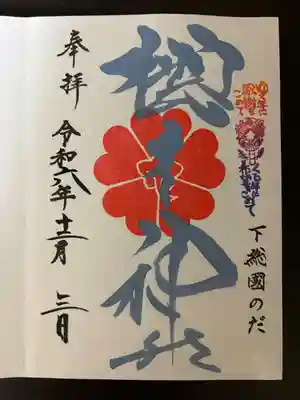 下総國のだ
櫻木神社
奉拝
令和六年十二月三日